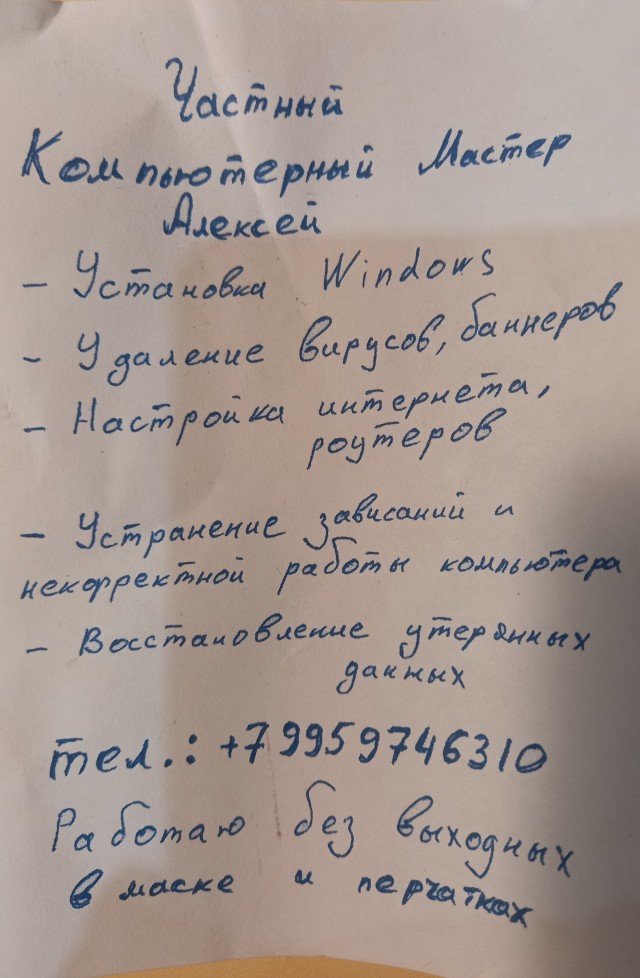 Частный
Компьютерный Мастер
Алексей
- Установка Windows
- Удаление вирусов, баннеров
- Настройка интернета,
роутеров
- Устранение зависаний и
некорректной работы компьютера
- Восстановление утерянных
данных
тел.: +79959746310
Работаю без выходных
в маске и перчатках